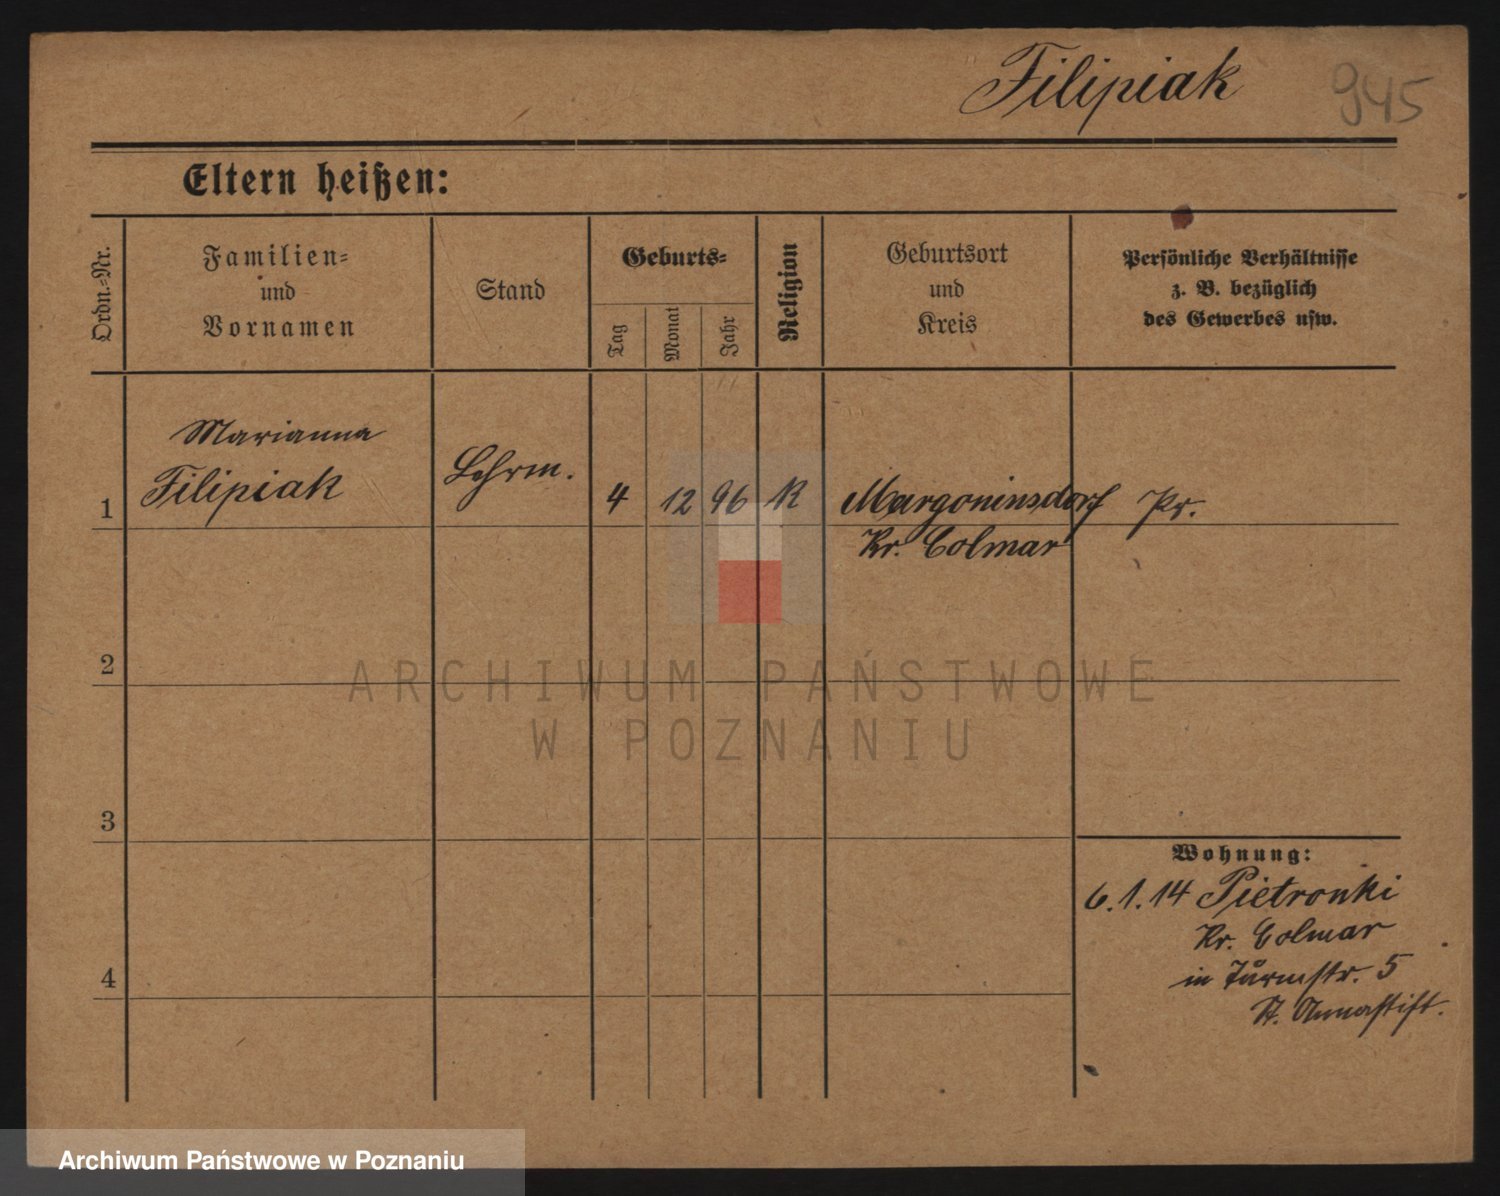 Filipiak 945
Eltern heißen:
Ordn.-Nr.
Familien-
und
Vornamen
Stand
Geburts-
Tag
Monat
Jahr
Religion
Geburtsort
und
Kreis
Persönliche Verhältnisse
z. B. bezüglich
des Gewerbes usw.
Marianna
1 Filipiak Lehrm. 4 12 96 K Margoninsdorf Pr.
Kr. Colmar
2
ARCHIWUM PAŃSTWOWE
W POZNANIU
3
Wohnung:
6.1.14 Pietronki
Kr. Colmar
in Turmstr. 5
4
St. Annastift.
Archiwum Państwowe w Poznaniu